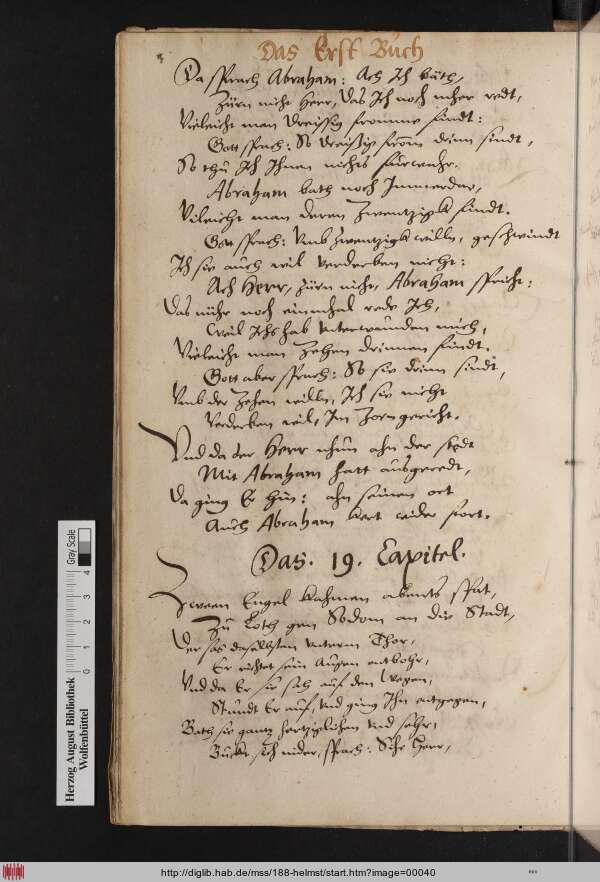 Das Erst Buch
Da sprach Abraham: Ach Ich bäth,
Zürn nicht Herr, das Ich noch mher redt,
Vieleicht man dreissig fromme findt:
Gott sprach: So dreißig from drinn sindt,
So thu Ich Ihnen nichts fürwahr.
Abraham bath noch Immerdar,
Vileicht man deren Zwentzigk findt.
Gott sprach: Umb zwentzigk willn, geschwindt
Ich sie auch wil verderben nicht:
Ach Herr, zürn nicht, Abraham spricht:
Das nuhr noch einmhal rede Ich,
Weil Ichs hab unterwunden mich,
Vieleicht man Zehen drinnen findt.
Gott aber sprach: So sie drinn sindt,
Umb der Zehen willn, Ich sie nicht
Verderben wil, Im Zorngericht.
Und da der Herr nhun ahn der stedt
Mit Abraham hatt ausgeredt,
Da ging Er hin: ahn seinen ort
Auch Abraham kert wider fort.
Das. 19. Capitel.
Zween Engel kahmen abents spat,
Zu Loth gen Sodom an die Stadt,
Der sas daselbsten unterm Thor,
Er richtet sein Augen entbohr,
Und da Er sie sah auf den Wegen,
Stundt Er auf, und ging Ihn entgegen,
Bath sie gantz hertziglichen und sehr,
Bückt sich nider, sprach: Sihe Herr,
Herzog August Bibliothek
Wolfenbüttel
0 1 2 3 4
Gray Scale
http://diglib.hab.de/mss/188-helmst/start.htm?image=00040